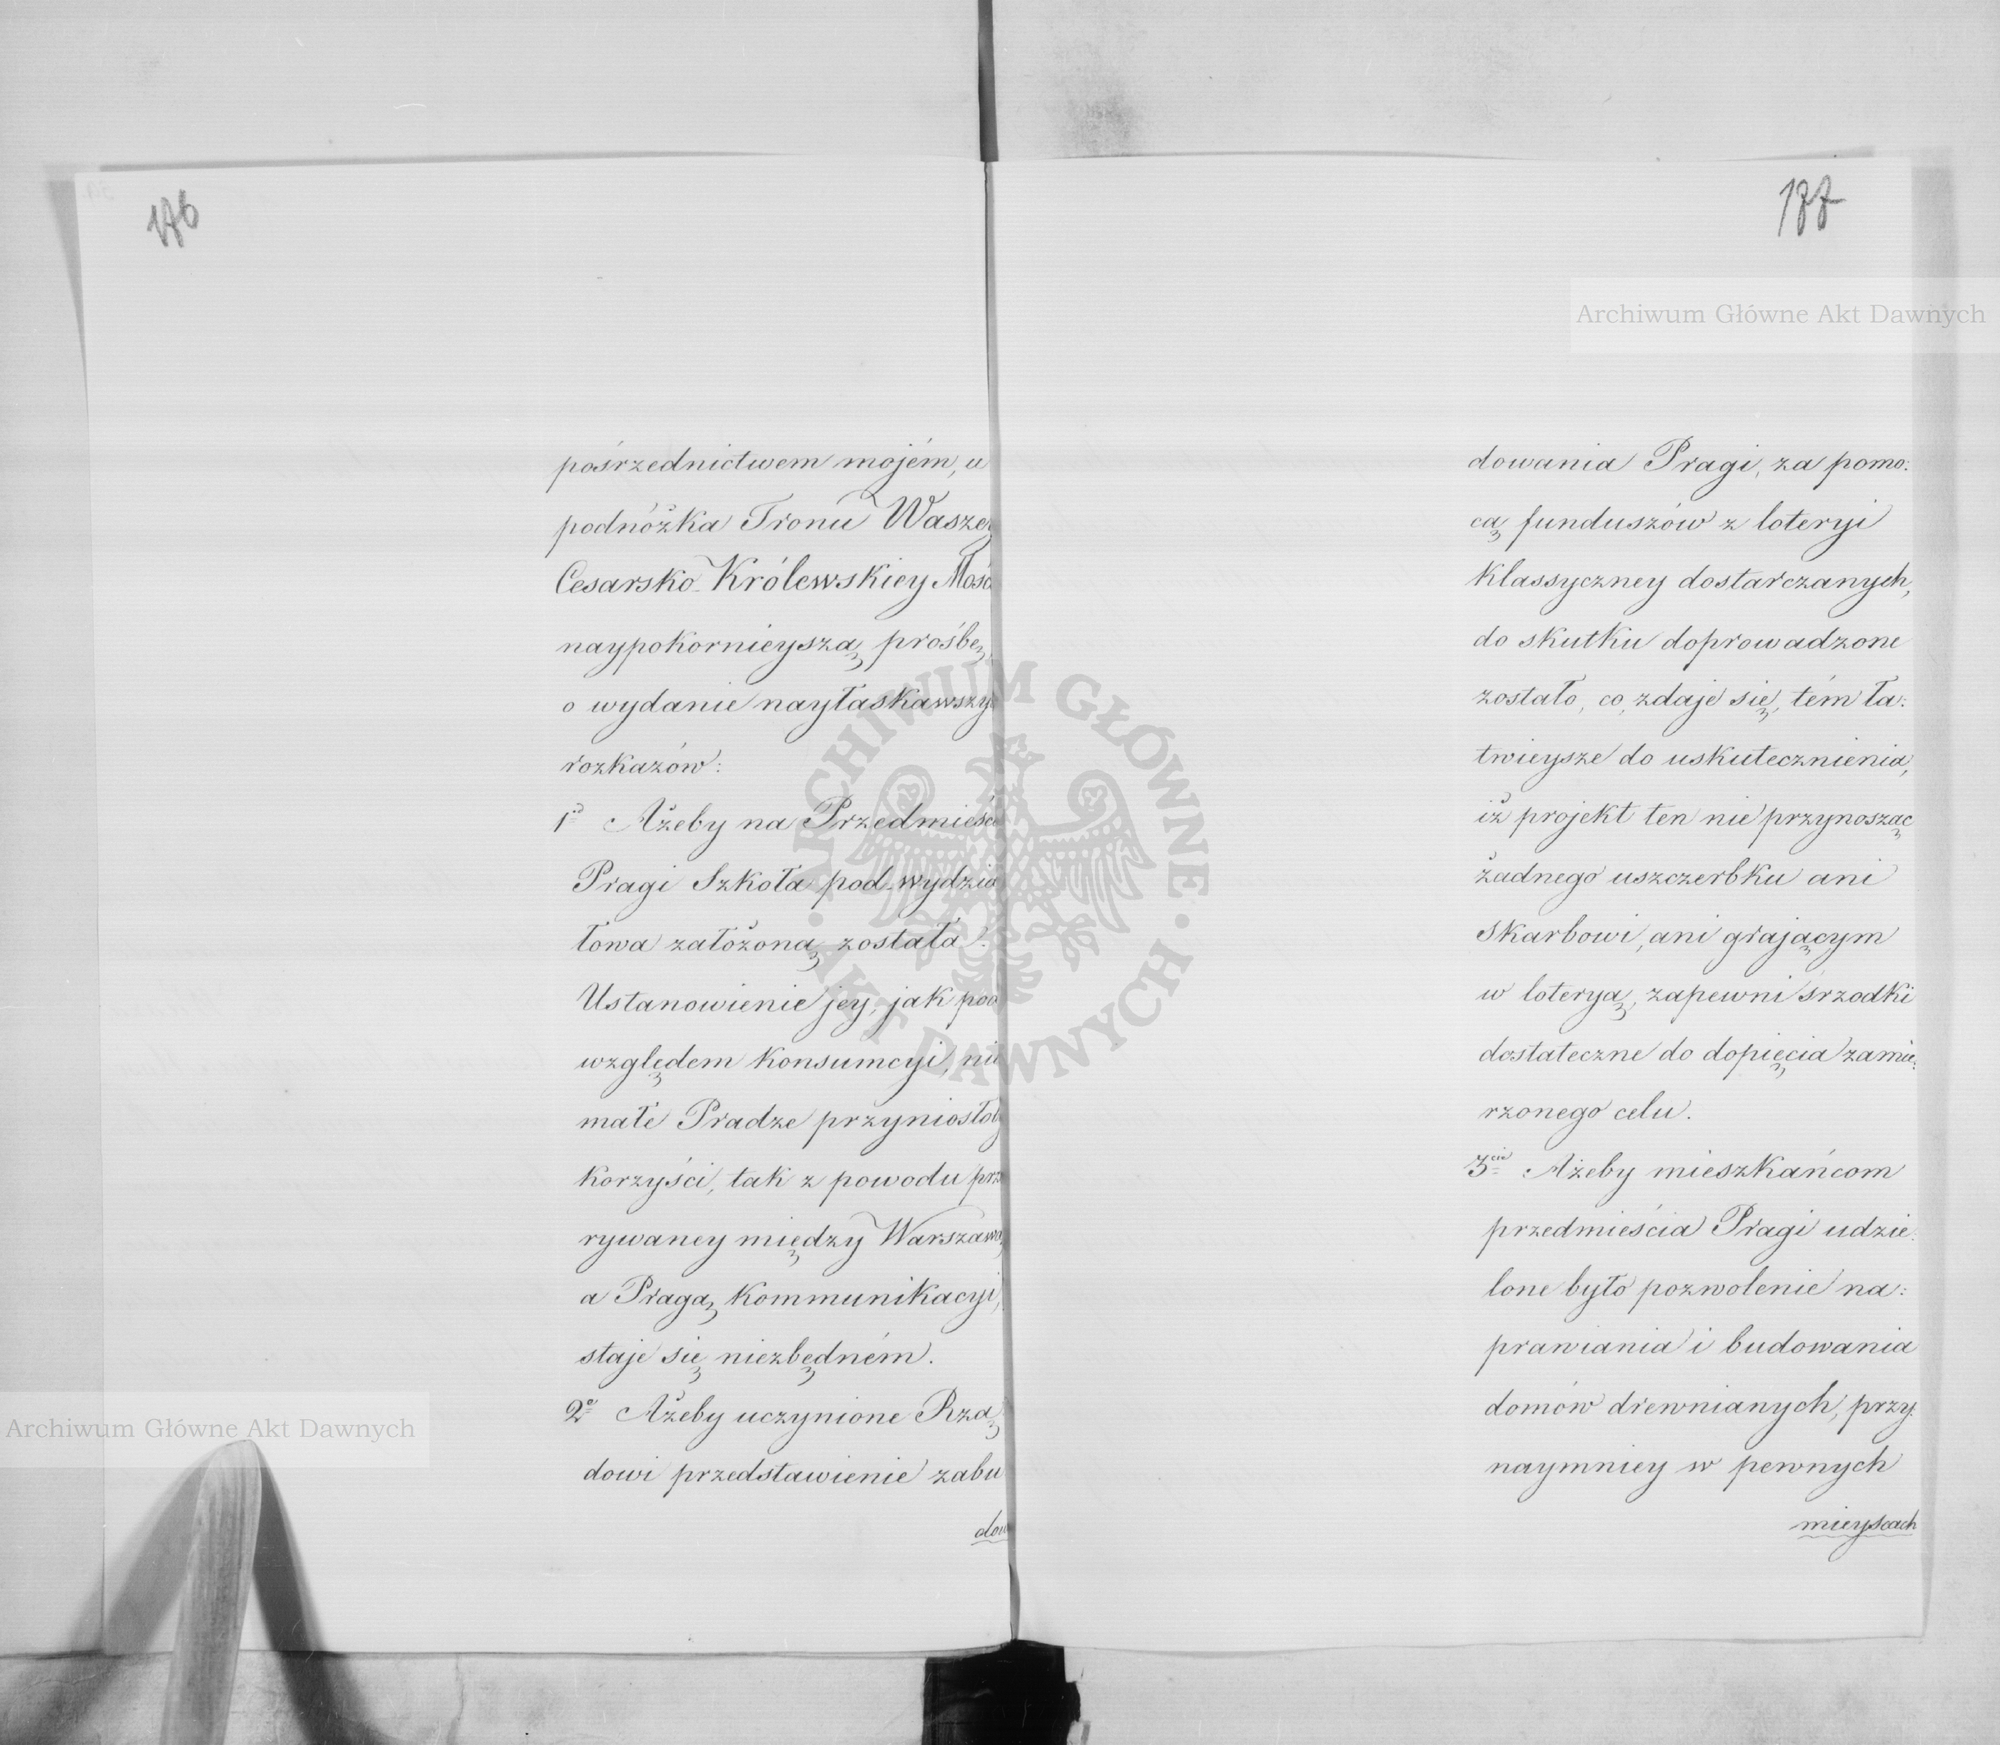 176
pośrzednictwem mojém, u
podnóżka Tronu Waszey
Cesarsko-Królewskiey Mośc
naypokornieyszą prośbę,
o wydanie nayłaskawszy
rozkazów:
1º Ażeby na Przedmieście
Pragi Szkoła pod-wydzia
łowa założoną została.
Ustanowienie jey, jak pod
względem konsumcyi, nie
małe Pradze przyniosłob
korzyści, tak z powodu prze
rywaney między Warszawą
a Pragą kommunikacyi,
staje się niezbędném.
2º Ażeby uczynione Rzą
dowi przedstawienie zabu
dow
177
dowania Pragi, za pomo:
cą funduszów z loteryi
klassyczney dostarczanych,
do skutku doprowadzone
zostało, co, zdaje się, tém ła:
twieysze do uskutecznienia,
iż projekt ten nie przynosząc
żadnego uszczerbku ani
skarbowi, ani grającym
w loteryą, zapewni śrzodki
dostateczne do dopięcia zamie:
rzonego celu.
3cie Ażeby mieszkańcom
przedmieścia Pragi udzie:
lone było pozwolenie na:
prawiania i budowania
domów drewnianych, przy:
naymniey w pewnych
mieyscach
Archiwum Główne Akt Dawnych
Archiwum Główne Akt Dawnych
ARCHIWUM GŁÓWNE · AKT DAWNYCH ·